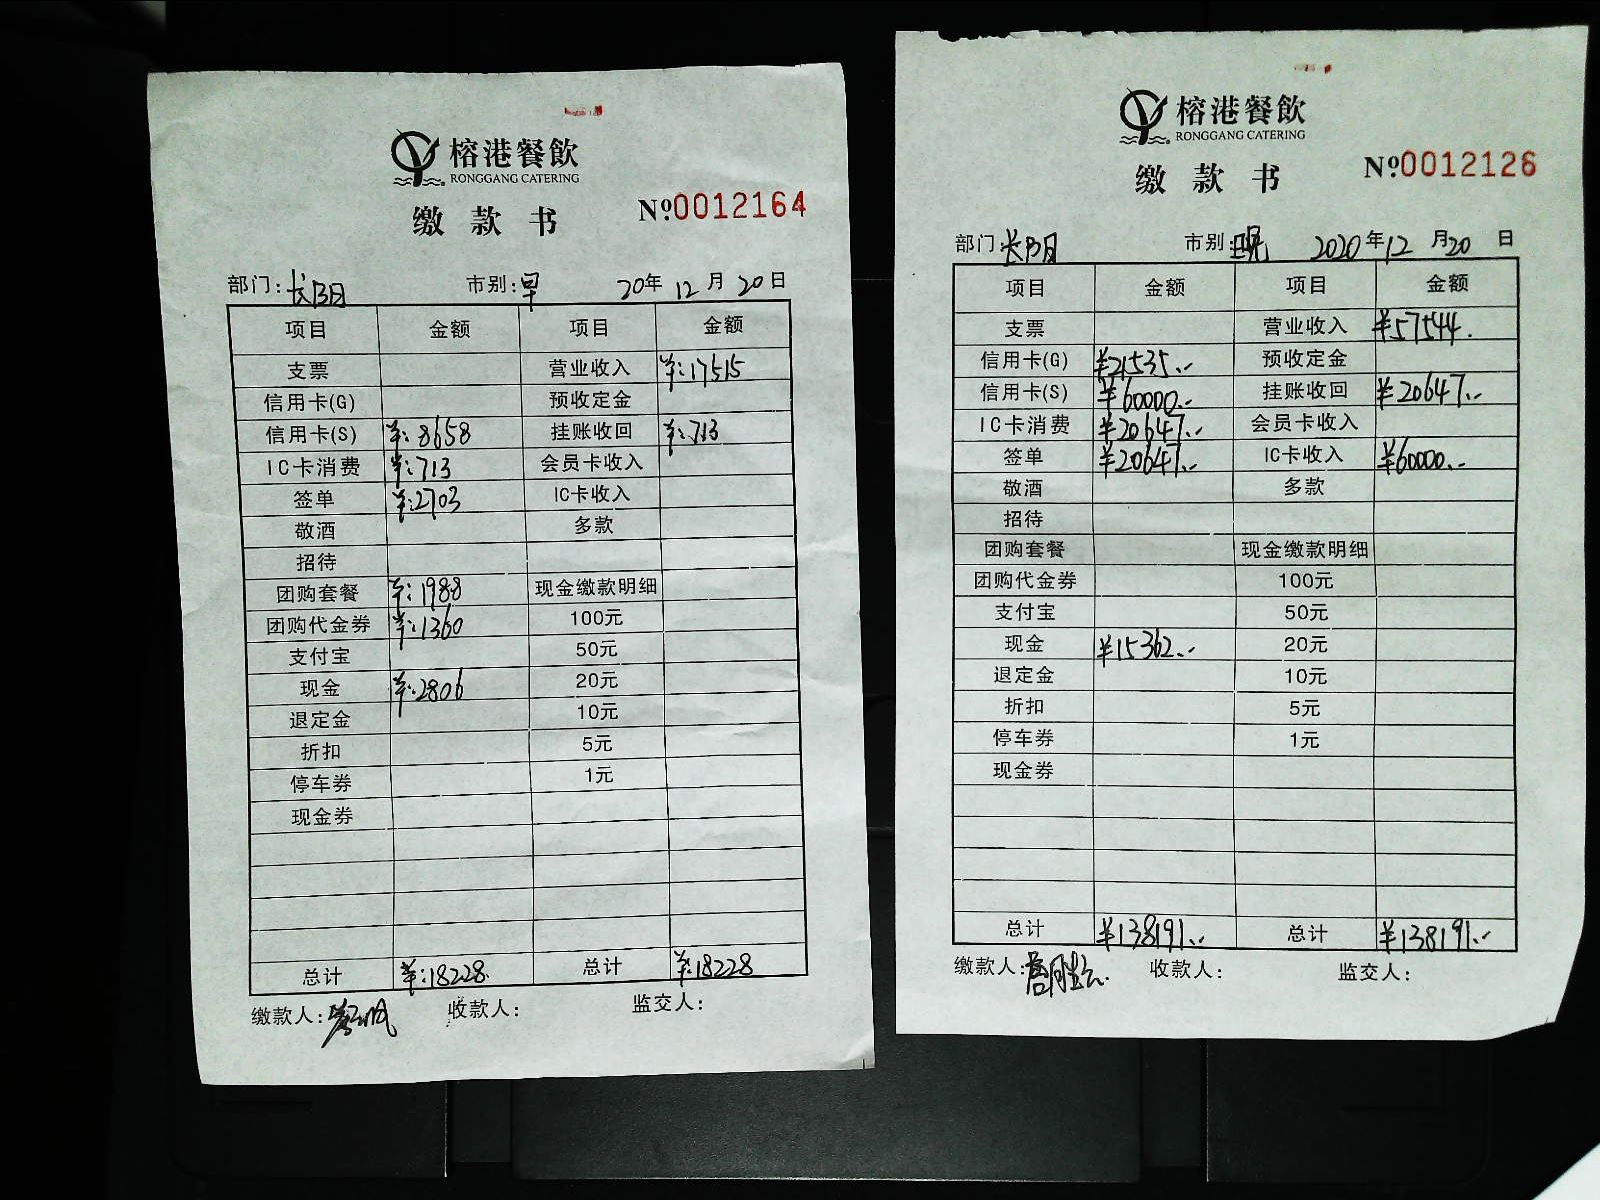 榕港餐飲
RONGGANG CATERING
缴款书 №0012164
部门:长阳 市别:早 20年12月20日
项目 金额 项目 金额
支票 营业收入 ¥:17515
信用卡(G) 预收定金
信用卡(S) ¥:8658 挂账收回 ¥:713
IC卡消费 ¥:713 会员卡收入
签单 ¥:2703 IC卡收入
敬酒 多款
招待
团购套餐 ¥:1988 现金缴款明细
团购代金券 ¥:1360 100元
支付宝 50元
现金 ¥:2806 20元
退定金 10元
折扣 5元
停车券 1元
现金券
总计 ¥:18228. 总计 ¥:18228
缴款人: 收款人: 监交人:
榕港餐飲
RONGGANG CATERING
缴款书 №0012126
部门:长阳 市别:晚 2020年12月20日
项目 金额 项目 金额
支票 营业收入 ¥57544.
信用卡(G) ¥21535.- 预收定金
信用卡(S) ¥60000.- 挂账收回 ¥20647.-
IC卡消费 ¥20647.- 会员卡收入
签单 ¥20647.- IC卡收入 ¥60000.-
敬酒 多款
招待
团购套餐 现金缴款明细
团购代金券 100元
支付宝 50元
现金 ¥15362.- 20元
退定金 10元
折扣 5元
停车券 1元
现金券
总计 ¥138191.- 总计 ¥138191.-
缴款人: 收款人: 监交人: